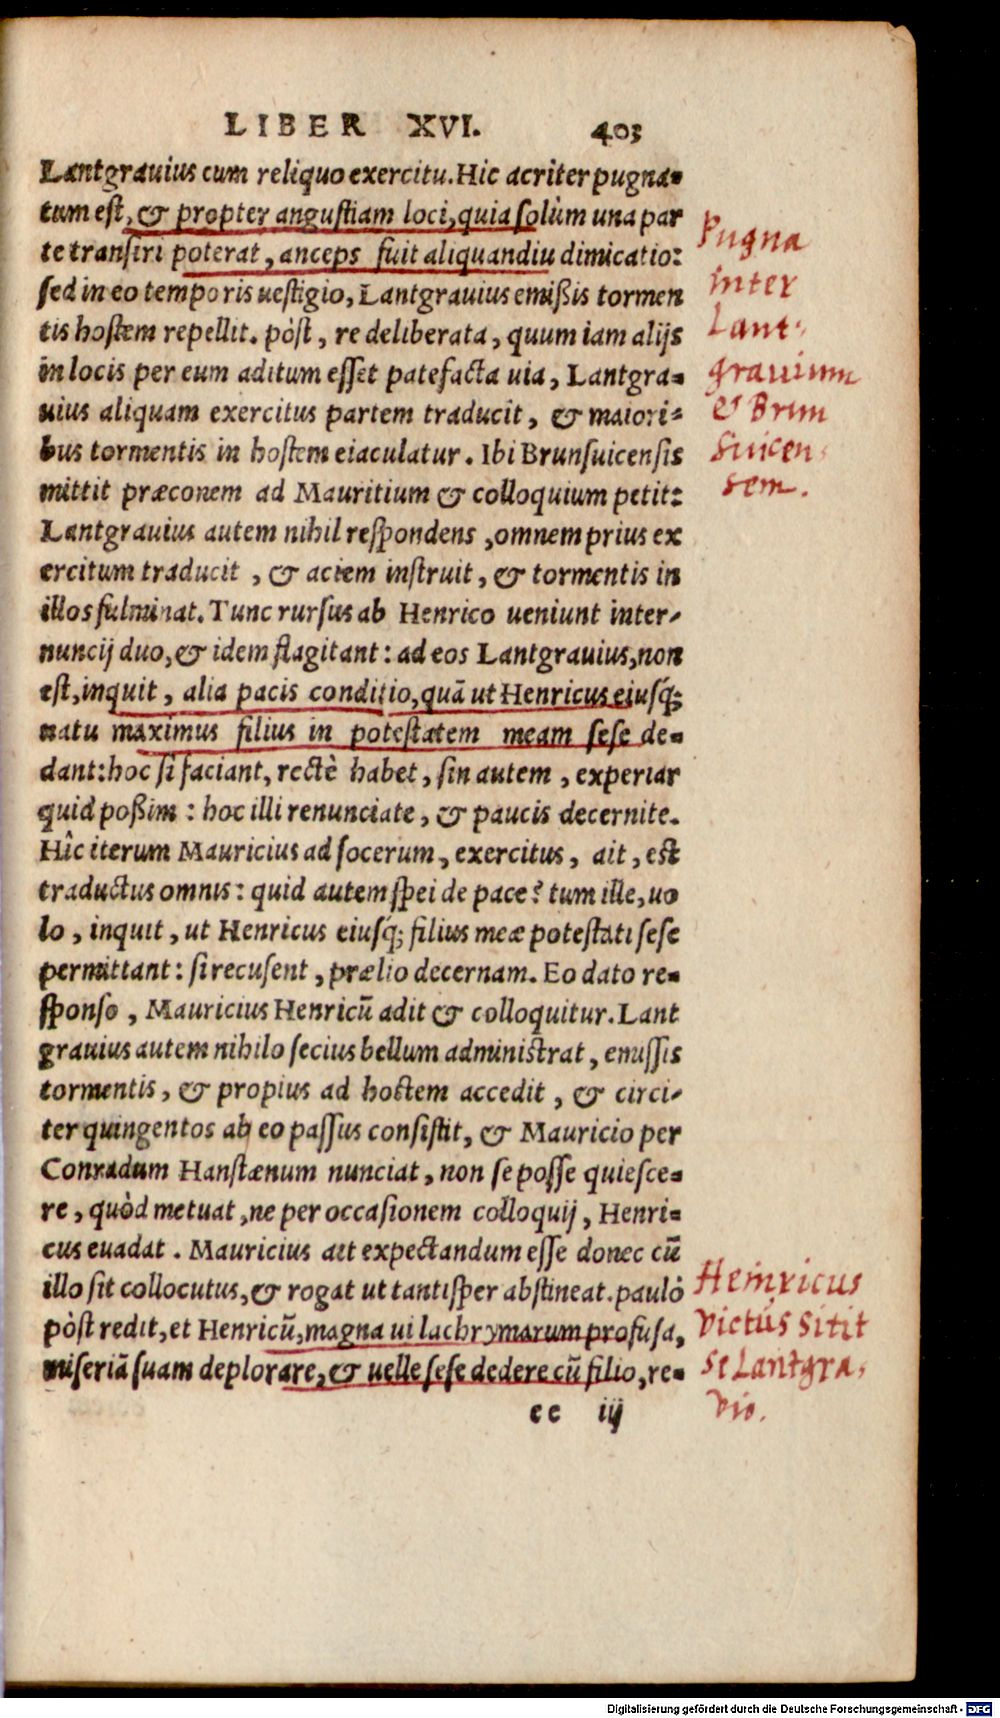 LIBER XVI. 403
Lantgrauius cum reliquo exercitu. Hic acriter pugna-
tum est, & propter angustiam loci, quia solùm una par
te transiri poterat, anceps fuit aliquandiu dimicatio:
sed in eo temporis uestigio, Lantgrauius emißis tormen
tis hostem repellit. pòst, re deliberata, quum iam alijs
in locis per eum aditum esset patefacta uia, Lantgra-
uius aliquam exercitus partem traducit, & maiori-
bus tormentis in hostem eiaculatur. Ibi Brunsuicensis
mittit præconem ad Mauritium & colloquium petit:
Lantgrauius autem nihil respondens, omnem prius ex
ercitum traducit, & aciem instruit, & tormentis in
illos fulminat. Tunc rursus ab Henrico ueniunt inter-
nuncij duo, & idem flagitant: ad eos Lantgrauius, non
est, inquit, alia pacis conditio, quã ut Henricus eiusq́;
natu maximus filius in potestatem meam sese de-
dant: hoc si faciant, rectè habet, sin autem, experiar
quid poßim: hoc illi renunciate, & paucis decernite.
Hîc iterum Mauricius ad socerum, exercitus, ait, est
traductus omnis: quid autem spei de pace? tum ille, uo
lo, inquit, ut Henricus eiusq́; filius meæ potestati sese
permittant: si recusent, prælio decernam. Eo dato re-
sponso, Mauricius Henricũ adit & colloquitur. Lant
grauius autem nihilo secius bellum administrat, emissis
tormentis, & propius ad hostem accedit, & circi-
ter quingentos ab eo passus consistit, & Mauricio per
Conradum Hanstænum nunciat, non se posse quiesce-
re, quòd metuat, ne per occasionem colloquij, Henri-
cus euadat. Mauricius ait expectandum esse donec cũ
illo sit collocutus, & rogat ut tantisper abstineat. paulò
pòst redit, et Henricũ, magna ui lachrymarum profusa,
miseriã suam deplorare, & uelle sese dedere cũ filio, re-
ee iij
Pugna
inter
Lant-
grauium
& Brun
suicen-
sem.
Heinricus
victus sitit
se Lantgra-
vio.